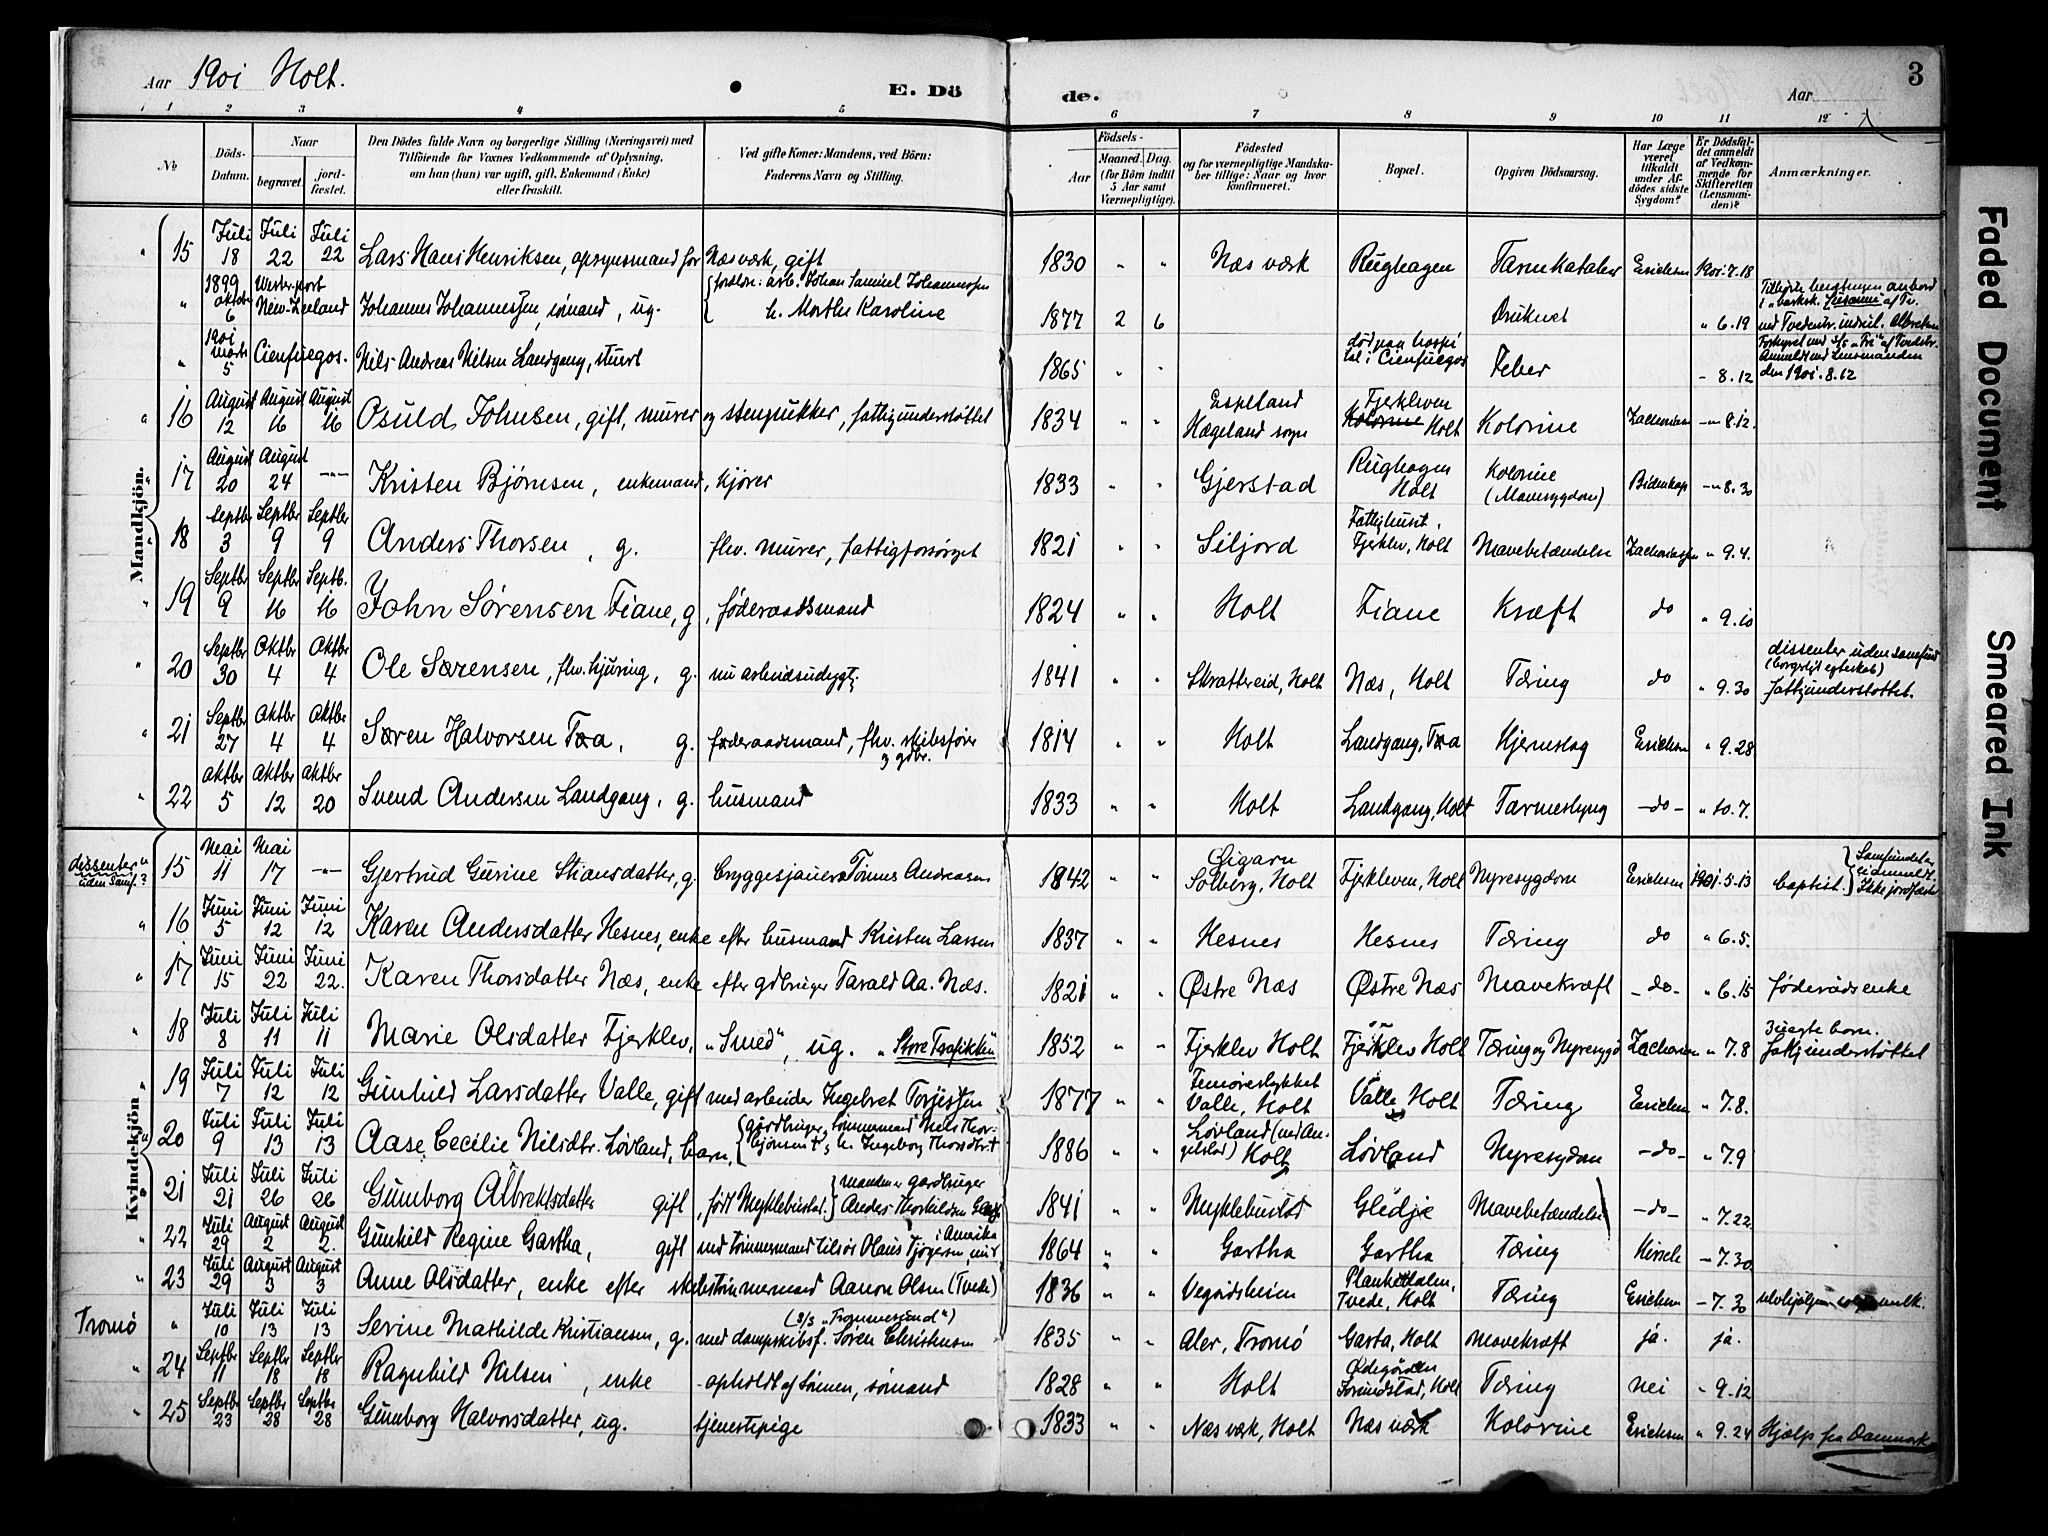 Aar 1901 Holt. E. Dö de. Aar 3
1 2 3 4 5 6 7 8 9 10 11 12
No
Döds-Datum.
Naar
begravet.
jord-fæstet.
Den Dödes fulde Navn og borgerlige Stilling (Næringsvei) med
Tilföiende for Voxnes Vedkommende af Oplysning,
om han (hun) var ugift, gift, Enkemand (Enke)
eller fraskilt.
Ved gifte Koner: Mandens, ved Börn:
Faderens Navn og Stilling.
Födsels-
Aar
Maaned. Dag.
(for Börn indtil
5 Aar samt
Værnepligtige).
Födested
og for værnepligtige Mandska-
ber tillige: Naar og hvor
konfirmeret.
Bopæl.
Opgiven Dödsaarsag.
Har Læge
været
tilkaldt
under Af-
dödes sidste
Sygdom?
Er Dödsfal-
det anmeldt
af Vedkom-
mende for
Skifteretten
(Lensman-
den)?
Anmærkninger.
Mandkjön.
" 15 Juli 18 Juli 22 Juli 22 Lars Hans Henriksen, opsynsmand for Næsværk, gift 1830 " " Næs værk Rughagen Tarmkatahr Erichsen 1901.7.18
" 1899 oktbr 6 Westerport New-Zeeland Johannes Johannessen, sømand, ug. {foreldre: arb. Johan Samuel Johannessen h. Marthe Karoline 1877 2 6 Druknet " 6.19
" 1901 marts 5 Cienfuegos. Nils Andreas Nilsen Landgang, stuert 1865 " " død paa hospi tal i Cienfuegos Feber - 8.12 Anmeldt ved Lensmanden den 1901.8.12
" 16 August 12 August 16 August 16 Osuld Johnsen, gift, murer og stenpukker, fattigunderstøttet 1834 " " Espeland Hægeland sogn Fjerkleven Holt Kolorine -"- 8.12.
" 17 August 20 August 24 -"- Kristen Bjørnsen, enkemand, kjører 1833 " " Gjerstad Rughagen Holt Kolorine (Mavesygdom) Bidenkap -"- 8.30
" 18 Septbr 3 Septbr 9 Septbr 9 Anders Thorsen, g. fhv. murer, fattigforsørget 1821 " " Siljord Fattighuset, Fjerklev, Holt Mavebetændelse Zachariassen " 9.4.
" 19 Septbr 9 Septbr 16 Septb. 16 John Sørensen Fiane, g, føderaadsmand 1824 " " Holt Fiane Kræft do " 9.10
" 20 Septbr 30 Oktbr 4 Oktbr 4 Ole Sørensen, fhv. hjuring, g. nu arbeidsudygt. 1841 " " Skratbereid, Holt Næs, Holt Tæring do " 9.30 dissenter uden samfund (borgerligt egteskab) fattigunderstøttet.
" 21 Septbr 27 Oktbr 4 Oktbr 4 Søren Halvorsen Tøa, g. føderaadsmand, fhv. skibsfører gdbr. 1814 " " Holt Landgang, Tøa Hjerneslag Erichsen " 9.28
" 22 Oktbr 5 Oktbr 12 Oktbr 20 Svend Andersen Landgang, g. husmand 1833 " " Holt Landgang, Holt Tarmeslyng -do- " 10.7.
Kvindekjön
dissenter uden samf.? 15 Mai 11 Mai 17 -"- Gjertrud Gurine Stiansdatter, g. bryggesjauer Tønnes Andreasen 1842 " " Solberg, Holt Fjerkleven, Holt Nyresygdom Erichsen 1901.5.13 baptist. {Samfundet er
" 16 Juni 5 Juni 12 Juni 12 Karen Andersdatter Hesnes, enke efter husmand Kristen Larsen 1837 " " Hesnes Hesnes Tæring do " 6.5.
" 17 Juni 15 Juni 22 Juni 22. Karen Thorsdatter Næs, enke efter gdbruger Tarald Aa. Næs. 1821 " " Østre Næs Østre Næs Mavekræft -do- " 6.15 føderåds enke
" 18 Juli 8 Juli 11 Juli 11 Marie Olsdatter Fjerklev, "Smed", ug. "Store Trafikken" 1852 " " Fjerklev Holt Fjerklev Holt Tæring og Nyresygd " 7.8 3 uegte born. fattigunderstøttet
" 19 Juli 7 Juli 12 Juli 12 Gunhild Larsdatter Valle, gift med arbeider Ingebret Torjussen 1877 " " Valle, Holt Valle Holt Tæring Erichsen " 7.8.
" 20 Juli 9 Juli 13 Juli 13 Aase Cecilie Nilsdtr. Løvland, barn, {gårdbruger, tømmermand Nils Thor- bjørnsen †, h. Ingeborg Thorsdtr. † 1886 " " Løvland (ved An- gelstad) Holt Løvland Nyresygdom -do- " 7.9
" 21 Juli 21 Juli 26 Juli 26 Gunborg Albrektsdatter gift, født Myklebustad. {manden er gardbruger 1841 " " Myklebustad Gledje Mavebetændelse -do- " 7.22.
" 22 Juli 29 August 2 August 2. Gunhild Regine Gartha, gift med tømmermand tilsjøs Olaus 1864 " " Gartha Gartha Tæring - 7.30.
" 23 Juli 29 August 3 August 3 Anne Olsdatter, enke efter skibstømmermand Aanon Olsen (Tvede) 1836 " " Vegårdsheien Tvede, Holt Tæring Erichsen - 7.30
Tromö " Juli 10 Juli 13 Juli 13 Serine Mathilde Kristiansen, g. med dampskibsf. Søren Christensen (S/S "Tromøsund") 1835 " " Aler, Tromö Garta, Holt Mavekræft ja. ja.
" 24 Septbr 11 Septbr 18 Septbr 18 Ragnhild Nilsen, enke opholdt af sønnen, sømand 1828 " " Holt Ødegården Holt Tæring nei " 9.12
" 25 Septbr 23 Septbr 28 Septbr 28 Gunborg Halvorsdatter, ug. tjenestepige 1833 " " Næs værk, Holt Næs værk Kolorine Erichsen " 9.24 Hjælp fra Danmark
Faded Document
Smeared Ink